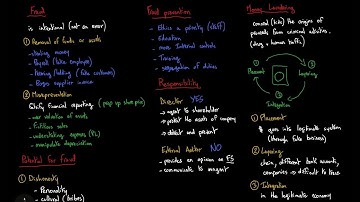 Fraud
is intentional (not an error)
① Removal of funds or assets
- stealing money
- Payroll (fake employee)
- Teeming & lading (fake customers)
- Bogus supplier invoice
② Misrepresentation
falsify financial reporting (pop up share price)
- over valuation of assets
- fictitious sales
- understating expenses (P/L)
- manipulate depreciation
Potential for fraud
① Dishonesty
- Personality
- cultural (bribes)
Fraud prevention
- Ethics a priority (staff)
- Education
- more Internal controls
- Training
- segregation of duties
Responsibility
Director YES
- agent to shareholder
- protect the assets of company
- detect and prevent
External Auditor NO
- provides an opinion on FS
- communicate to management
Money Laundering
conceal (hide) the origins of
proceeds from criminal activities.
(drug & human traffic)
Placement
Layering
Integration
① Placement
$ goes into legitimate system
(through fake business)
② Layering
chain, different bank accounts,
companies → difficult to trace
③ Integration
in the legitimate economy